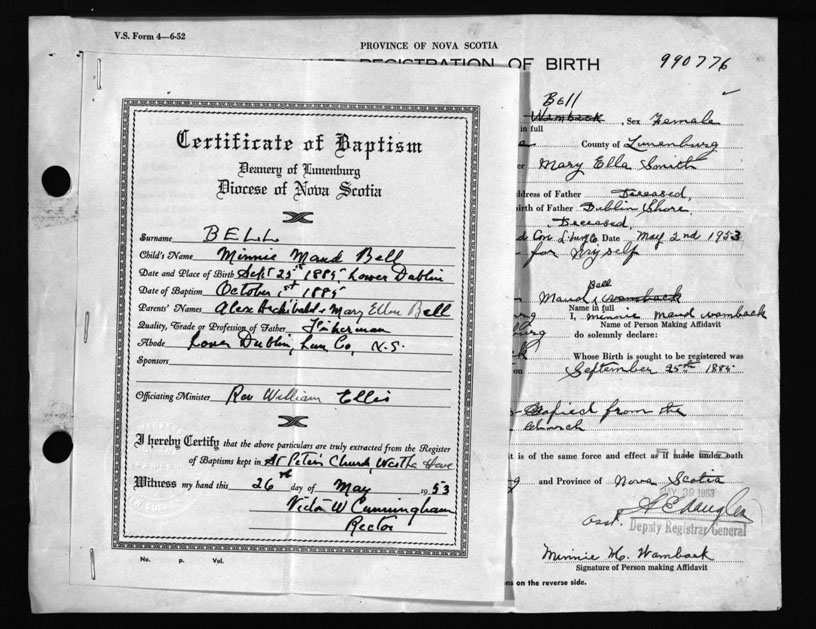 V.S. Form 4—6-52
PROVINCE OF NOVA SCOTIA
REGISTRATION OF BIRTH
990776
Certificate of Baptism
Deanery of Lunenburg
Diocese of Nova Scotia
Surname BELL
Child's Name Minnie Maud Bell
Date and Place of Birth Sept 25th 1885 Lower Dublin
Date of Baptism October 1st 1885
Parents' Names Alex Archibald & Mary Ellen Bell
Quality, Trade or Profession of Father Fisherman
Abode Lower Dublin, Lun Co, N.S.
Sponsors
Officiating Minister Rev William Ellis
I hereby Certify that the above particulars are truly extracted from the Register
of Baptisms kept in St Peter's Church, West La Have
Witness my hand this 26th day of May 1953
Victor W Cunningham
Rector
No. P. Vol.
Bell
Wamback, Sex Female
in full
County of Lunenburg
Mary Ella Smith
address of Father Deceased,
Birth of Father Dublin Shore
Deceased,
Date May 2nd 1953
for Myself
Bell
Maud Wamback
Name in full
I, Minnie Maud Wamback
Name of Person Making Affidavit
do solemnly declare:
Whose Birth is sought to be registered was
on September 25th 1885
from the
Church
it is of the same force and effect as if made under oath
and Province of Nova Scotia
MAY 29 1953
Asst.
Deputy Registrar General
Minnie M. Wamback
Signature of Person making Affidavit
ns on the reverse side.